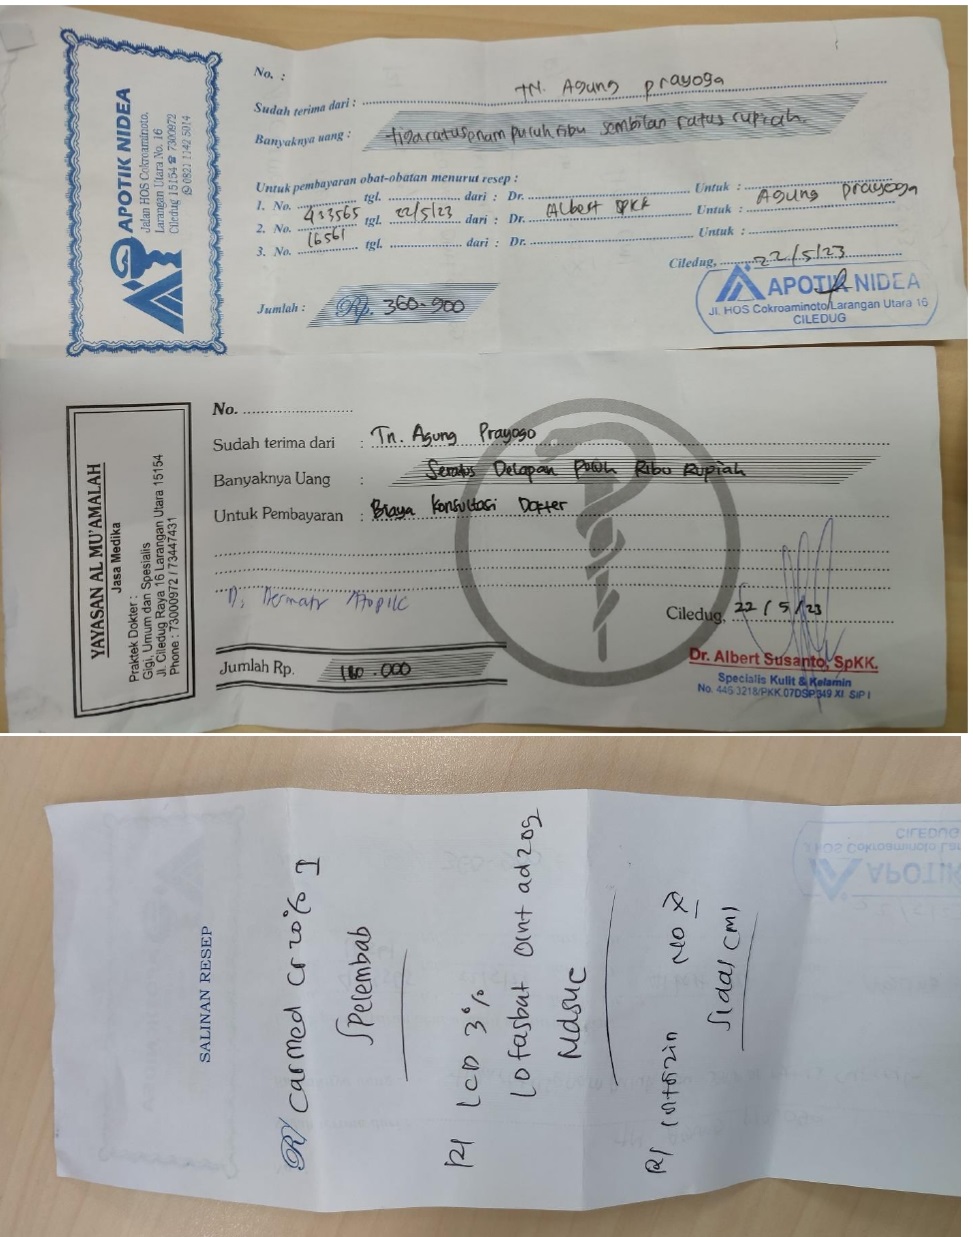 APOTIK NIDEA
Jalan HOS Cokroaminoto,
Larangan Utara No. 16
Ciledug 15154 ☎ 7300972
0821 1142 5014
No. :
Sudah terima dari : TN. Agung prayoga
Banyaknya uang : tigaratusenam puluh ribu sembilan ratus rupiah.
Untuk pembayaran obat-obatan menurut resep :
1. No. 413565 tgl. 22/5/23 dari : Dr. Albert SPKK Untuk : Agung prayoga
2. No. 16561 tgl. dari : Dr. Untuk :
3. No. tgl. dari : Dr. Untuk :
Ciledug, 22/5/23
Jumlah : Rp. 360.900
APOTIK NIDEA
Jl. HOS Cokroaminoto/Larangan Utara 16
CILEDUG
YAYASAN AL MU'AMALAH
Jasa Medika
Praktek Dokter :
Gigi, Umum dan Spesialis
Jl. Ciledug Raya 16 Larangan Utara 15154
Phone : 73000972 / 73447431
No.
Sudah terima dari : Tn. Agung Prayogo
Banyaknya Uang : Seratus Delapan Puluh Ribu Rupiah
Untuk Pembayaran : Biaya Konsultasi Dokter
Dermatr Atopic
Ciledug, 22 / 5 / 23
Jumlah Rp. 180.000
Dr. Albert Susanto, SpKK.
Specialis Kulit & Kelamin
SALINAN RESEP
R/ Carmed cr 20% I
S Pelembab
R/ LCD 3%
Lofasbat oint ad 20g
Mdsuc
R/ Intrizin no X
S1da1 cm1
APOTIK
CILEDUG